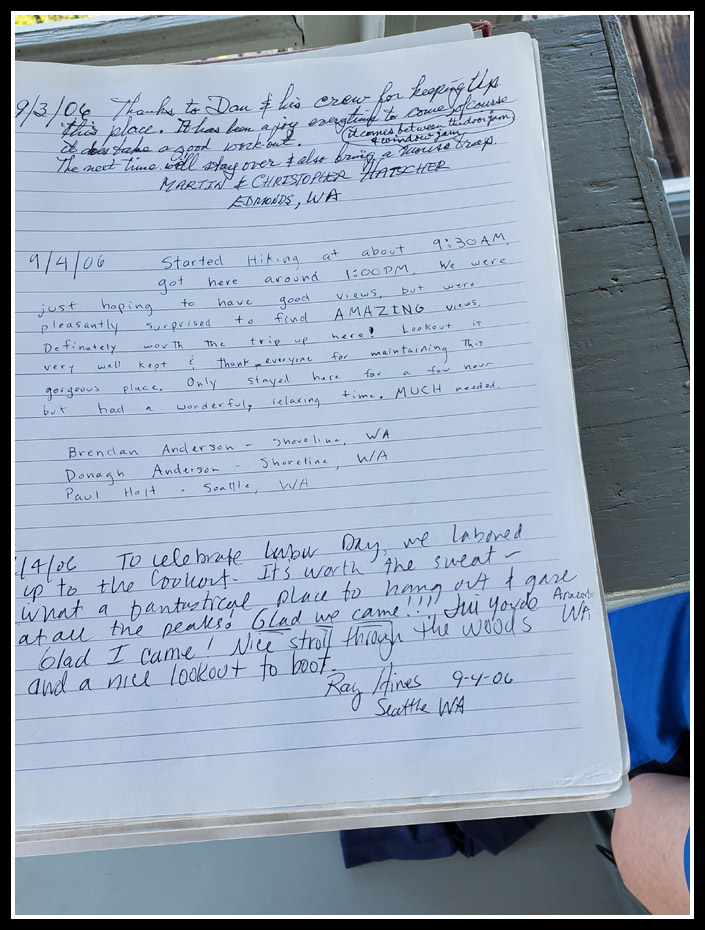 9/3/06 Thanks to Dan & his crew for keeping up
this place. It has been a joy everytime to come of course
it does take a good workout. (it comes between the doorjam
& window jam)
The next time will stay over & also bring a mouse trap.
MARTIN & CHRISTOPHER HATCHER
EDMONDS, WA
9/4/06 Started Hiking at about 9:30AM,
got here around 1:00PM. We were
just hoping to have good views, but were
pleasantly surprised to find AMAZING views.
Definately worth the trip up here! Lookout is
very well kept & thank everyone for maintaining this
gorgeous place. Only stayed here for a few hour
but had a wonderful, relaxing time. MUCH needed.
Brendan Anderson - Shoreline, WA
Donagh Anderson - Shoreline, WA
Paul Holt - Seattle, WA
/4/06 To celebrate Labor Day, we labored
up to the lookout. It's worth the sweat -
what a fantastical place to hang out & gaze
at all the peaks! Glad we came!!!!
WA
Glad I came! Nice stroll through the woods
and a nice lookout to boot.
Ray Hines 9-4-06
Seattle WA